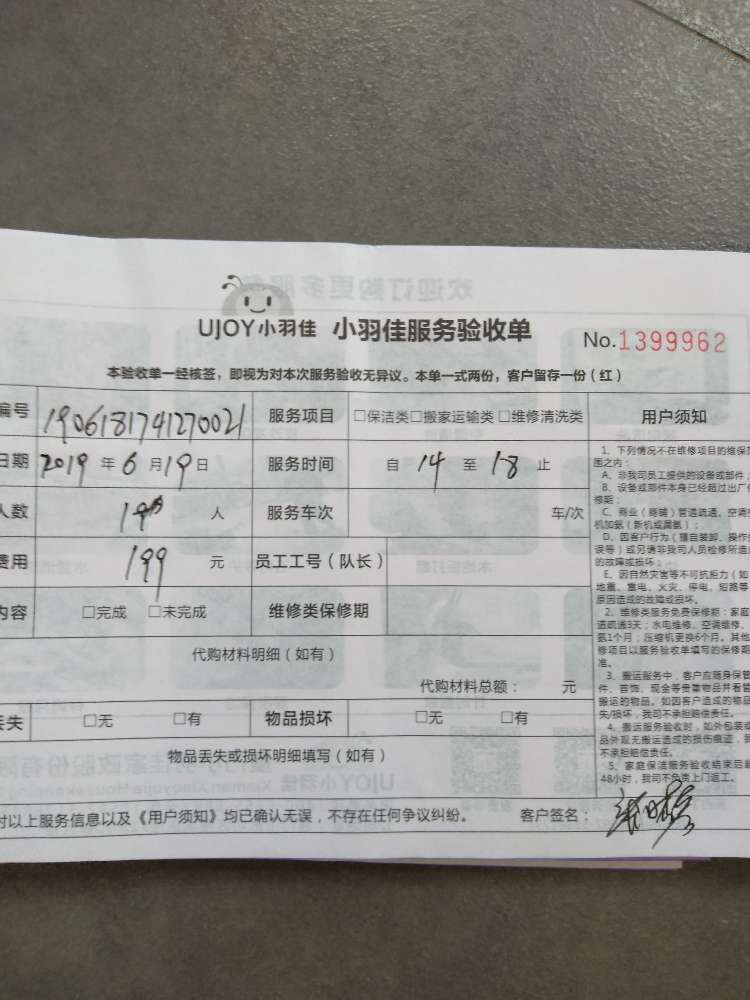 UJOY小羽佳 小羽佳服务验收单 No.1399962
本验收单一经核签，即视为对本次服务验收无异议。本单一式两份，客户留存一份（红）
编号 1906181741270021 服务项目 □保洁类□搬家运输类 □维修清洗类 用户须知
日期 2019 年 6 月 19 日 服务时间 自 14 至 18 止
人数 人 服务车次 车/次
费用 199 元 员工工号（队长）
内容 □完成 □未完成 维修类保修期
代购材料明细（如有）
代购材料总额： 元
丢失 □无 □有 物品损坏 □无 □有
物品丢失或损坏明细填写（如有）
对以上服务信息以及《用户须知》均已确认无误，不存在任何争议纠纷。 客户签名：
1、下列情况不在维修项目的维保范
围之内：
A、非我司员工提供的设备或部件；
B、设备或部件本身已经超过出厂保
修期；
C、商业（商铺）管道疏通、空调
机加氨（新机或漏氨）；
D、因客户行为（擅自装卸、操作失
误等）或另请非我司人员检修所造成
的故障或损坏；
E、因自然灾害等不可抗拒力（如
地震、雷电、火灾、停电、短路等
原因造成的故障或损坏。
2、维修类服务免费保修期：家庭
道疏通3天；水电维修、空调维修、
氨1个月；压缩机更换6个月。其他
修项目以服务验收单填写的保修期
准。
3、搬运服务中，客户应随身保管
件、首饰、现金等贵重物品并看管
搬运的物品。如因客户造成的物品
失/损坏，我司不承担赔偿责任。
4、搬运服务验收时，如外包装或
品外观无搬运造成的损伤痕迹，我
不承担赔偿责任。
5、家庭保洁服务验收结束后超
48小时，我司不负责上门返工。